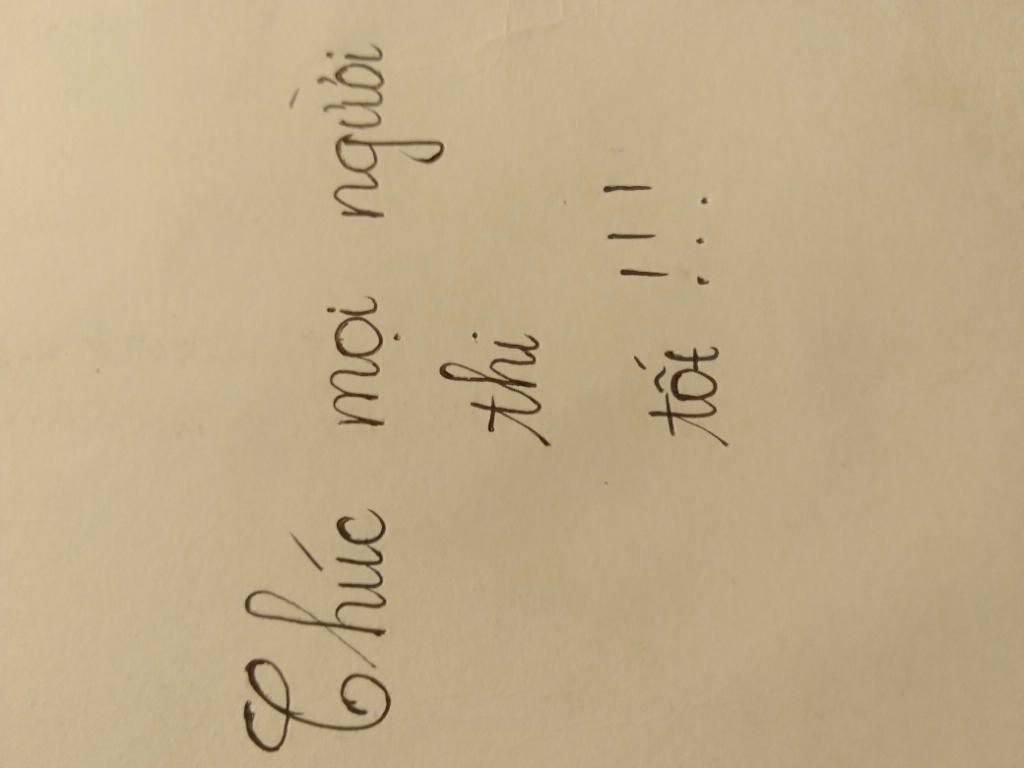 Chúc mọi người
thi
tốt !!!